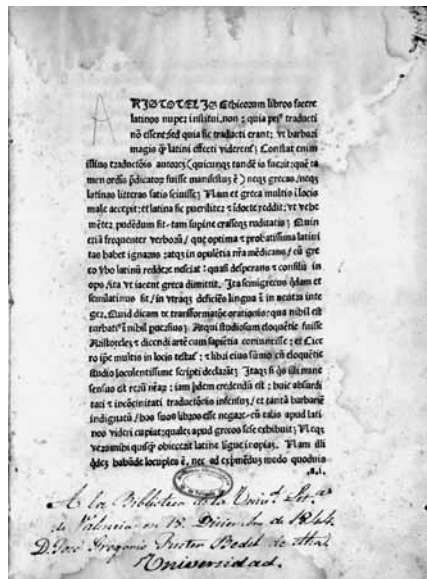 A
RISTOTELIS Ethicorum libros facere
latinos nuper institui, non: quia pri⁹ traducti
nō essent: sed quia sic traducti erant; vt barbari
magis q̄ latini effecti viderent᷑; Constat enim
illius traductōis autorē (quicunq₃ tandē is fuerit: quē ta
men ordīs p̄dicatoꝝ fuisse manifestuȝ ē) neq₃ grecas/neq₃
latinas literas satis sciuisse; Nam et greca multis ī locis
male accepit: et latina sic pueriliter ⁊ īdocte reddit: vt vehe
mēter pudēdum sit tam supine crasseq₃ ruditatis; Quin
etiā frequenter verboꝝ/ que optima ⁊ probatissima latini
tas habet ignarus: atq₃ in opulētia nr̄a mēdicans/ cū gre
co vbo latinū reddere nesciat: quasi desperans ⁊ consilii in
ops/ita vt iacent greca dimittit. Ita semigrecus q̄dam et
semilatinus fit/ in vtraq₃ deficiēs lingua ī neutra inte
ger. Quid dicam de transformatōe orationis: qua nihil est
turbati⁹ nihil puersius; Atqui studiosum eloquētie fuisse
Aristotelez ⁊ dicendi artē cum sapiētia coniunxisse: et Cice
ro ip̄e multis in locis testat᷑: ⁊ libri eius sūmo cū eloquētie
studio loculentissime scripti declarāt; Itaq₃ si q̄s illi nunc
sensus est rerū nr̄aꝝ: iam p̄dem credendū est: huic absurdi
tati ⁊ incōcinitati traductōnis infensus/ et tantā barbariē
indignatū/ hos suos libros esse negare: cū talis apud lati
nos videri cupiat: quales apud grecos sese exhibuit; Neq₃
vero mihi quisq̄ obiecerit latine līgue inopiaȝ. Nam illi
q̄dez habūde locuples ē, nec ad exp̄mēdus modo quoduis
.a.i.
A la Biblioteca de la Univ.d Lit.a
de Valencia en 18 Diciembre de 1844
D. José Gregorio Fuster Bedel de dha.
Universidad.